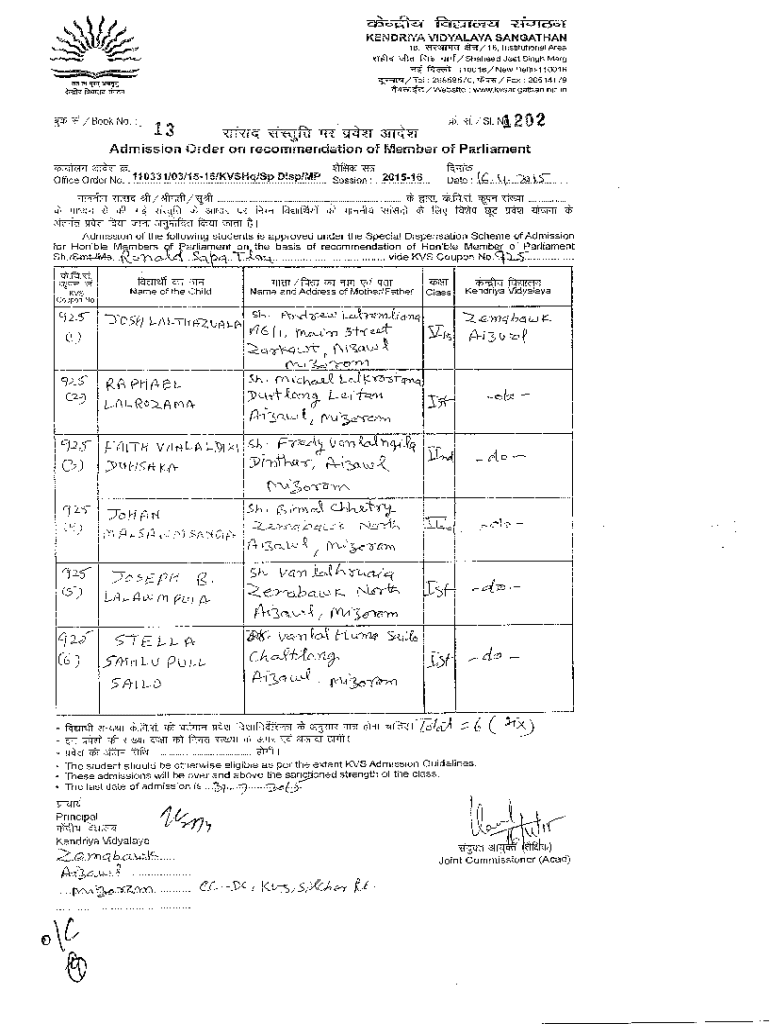 केन्द्रीय विद्यालय संगठन
KENDRIYA VIDYALAYA SANGATHAN
18, संस्थागत क्षेत्र / 18, Institutional Area
शहीद जीत सिंह मार्ग / Shaheed Jeet Singh Marg
नई दिल्ली 110016 / New Delhi-110016
केन्द्रीय विद्यालय संगठन
बुक सं / Book No. : 13
क्र. सं. / Sl. No 1202
सांसद संस्तुति पर प्रवेश आदेश
Admission Order on recommendation of Member of Parliament
कार्यालय आदेश क्र. शैक्षिक सत्र दिनांक
Office Order No. : 110331/03/15-16/KVSHq/Sp Disp/MP Session : 2015-16 Date : 16.4.2015
माननीय सांसद श्री / श्रीमती / सुश्री के द्वारा, के.वि.सं. कूपन संख्या
के माध्यम से की गई संस्तुति के आधार पर निम्न विद्यार्थियों को माननीय सांसदों के लिए विशेष छूट प्रवेश योजना के
अंतर्गत प्रवेश दिया जाना अनुमोदित किया जाता है।
Admission of the following students is approved under the Special Dispensation Scheme of Admission
for Hon'ble Members of Parliament on the basis of recommendation of Hon'ble Member of Parliament
Sh./Smt./Ms. Ronald Sapa Tlau vide KVS Coupon No. 925
के.वि.सं. कूपन सं. KVS Coupon No
विद्यार्थी का नाम Name of the Child
माता / पिता का नाम एवं पता Name and Address of Mother/Father
कक्षा Class
केन्द्रीय विद्यालय Kendriya Vidyalaya
925 (1) JOSH LALTHAZUALA Sh. Andrew Lalremliana Main Street Zarkawt, Aizawl Mizoram Zemabawk Aizawl
925 (2) RAPHAEL LALROZAMA Sh. Michael Durtlang Leitan Aizawl, Mizoram Ist -do-
925 (3) FAITH Sh. Fredy Vanlalngila Dinthar, Aizawl Mizoram IInd -do-
925 (4) JOHAN MALSAWMSANGA Sh. Bimal Chhetry Zemabawk North Aizawl, Mizoram -do-
925 (5) JOSEPH B. LALAWMPUIA Sh Zemabawk North Aizawl, Mizoram Ist -do-
925 (6) STELLA SAWILU PUII SAILO Chaltlang Aizawl, Mizoram Ist -do-
Total = 6 (Six)
- प्रवेश की अंतिम तिथि होगी।
- The student should be otherwise eligible as per the extant KVS Admission Guidelines.
- These admissions will be over and above the sanctioned strength of the class.
- The last date of admission is
प्राचार्य
Principal
केन्द्रीय विद्यालय
Kendriya Vidyalaya
Zemabawk
Aizawl
Mizoram
CC-DC, KVS, Silchar
16/4/15
संयुक्त आयुक्त (शैक्षिक)
Joint Commissioner (Acad)
O/C